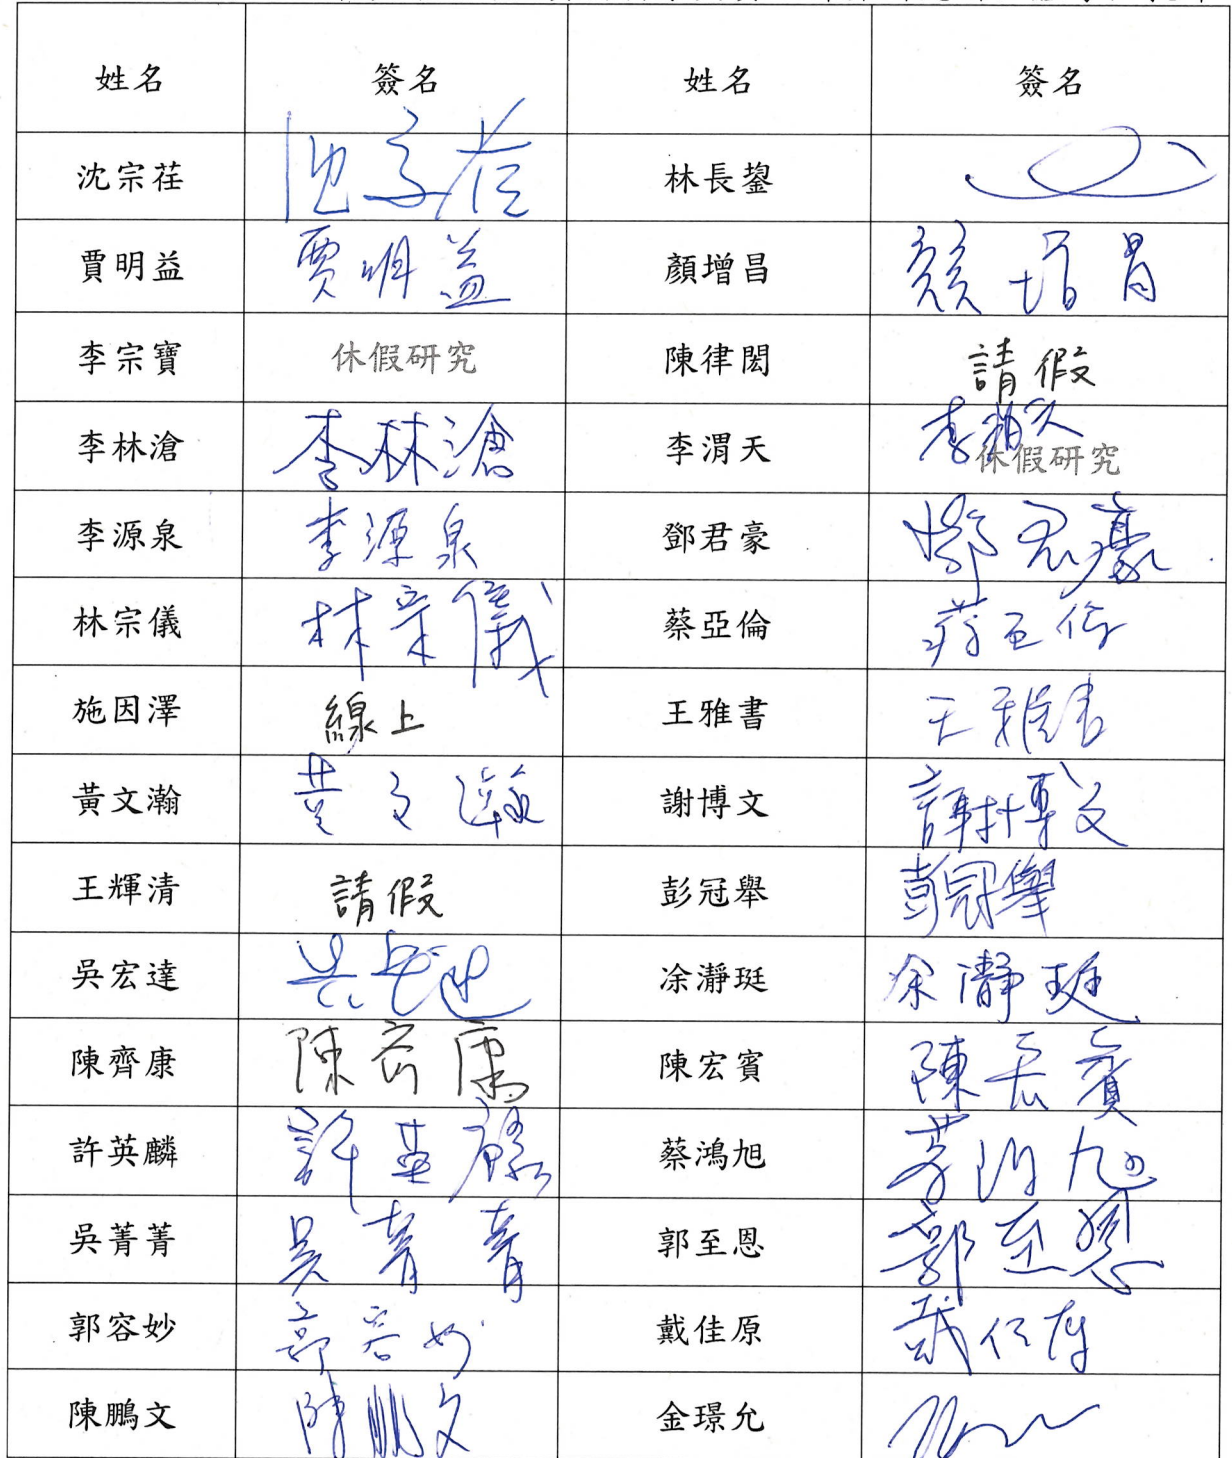 姓名 簽名 姓名 簽名
沈宗荏 沈宗荏 林長鋆
賈明益 賈明益 顏增昌 顏增昌
李宗寶 休假研究 陳律閎 請假
李林滄 李林滄 李渭天 李渭天 休假研究
李源泉 李源泉 鄧君豪 鄧君豪
林宗儀 林宗儀 蔡亞倫 蔡亞倫
施因澤 線上 王雅書 王雅書
黃文瀚 黃文瀚 謝博文 謝博文
王輝清 請假 彭冠舉 彭冠舉
吳宏達 吳宏達 凃瀞珽 凃瀞珽
陳齊康 陳齊康 陳宏賓 陳宏賓
許英麟 許英麟 蔡鴻旭 蔡鴻旭
吳菁菁 吳菁菁 郭至恩 郭至恩
郭容妙 郭容妙 戴佳原 戴佳原
陳鵬文 陳鵬文 金璟允